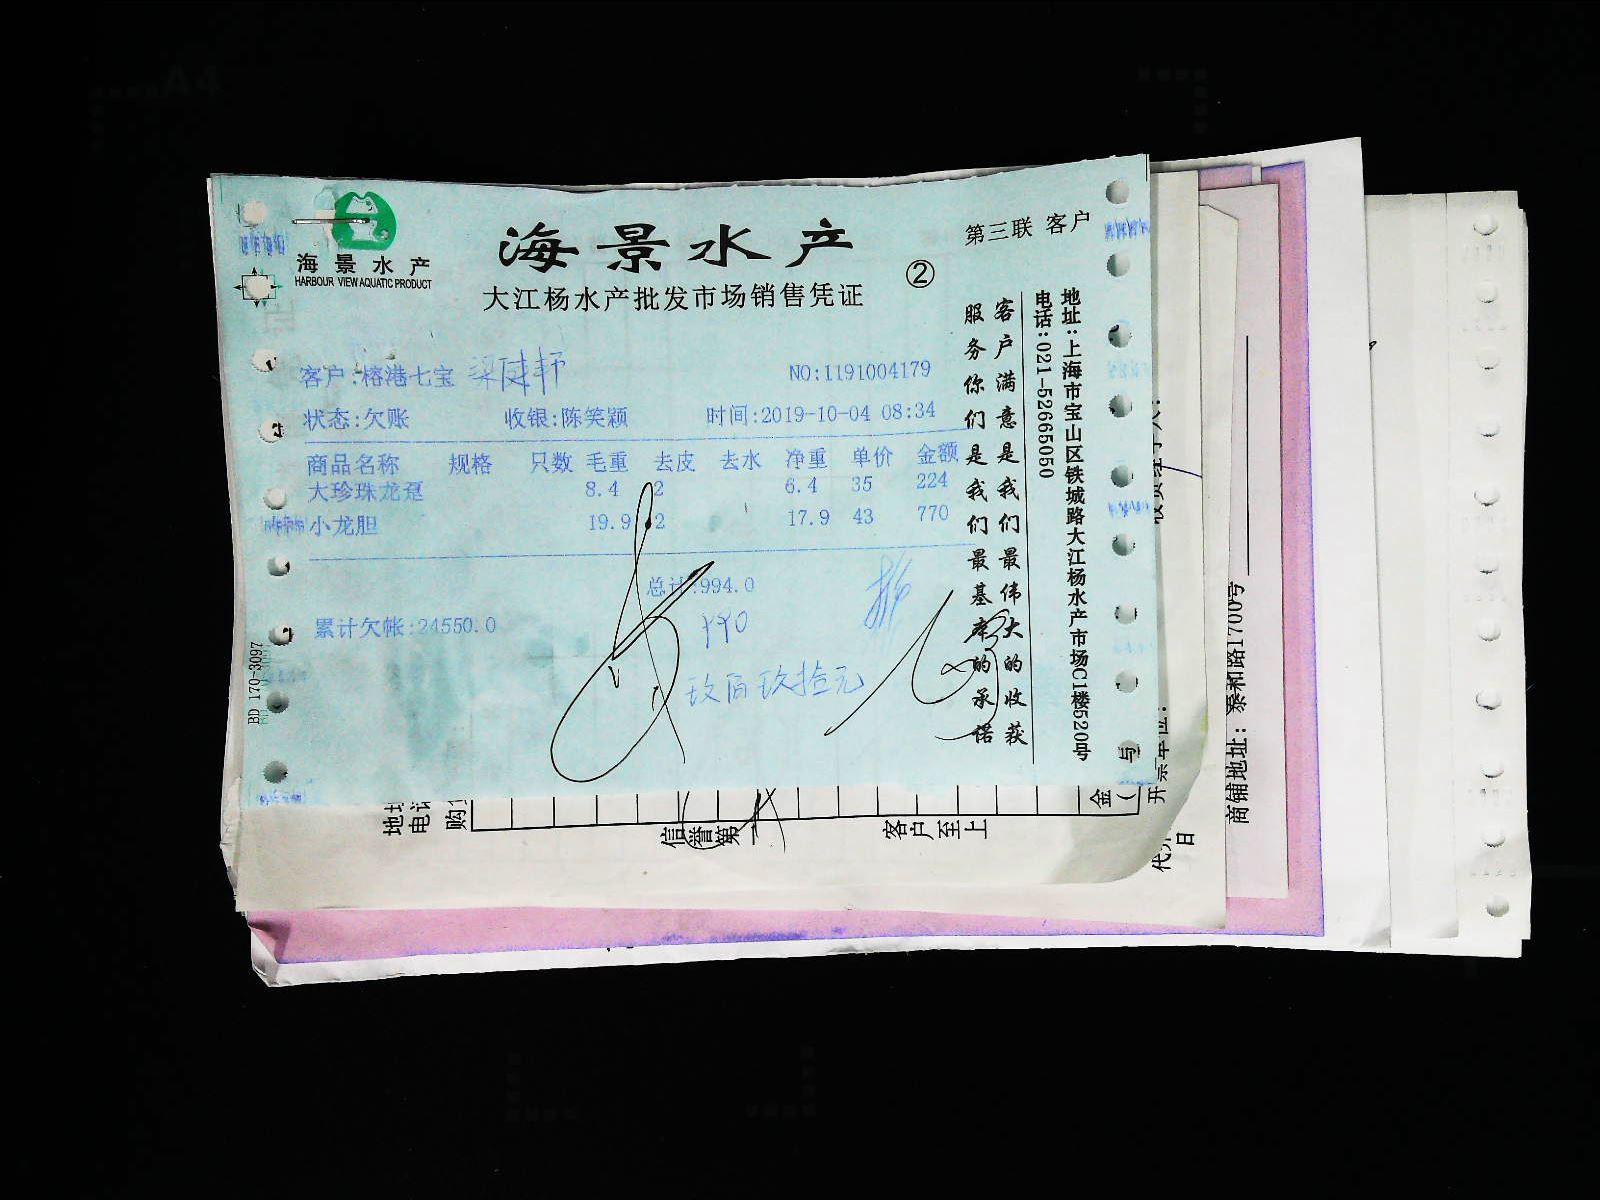 海景水产
HARBOUR VIEW AQUATIC PRODUCT
海景水产
大江杨水产批发市场销售凭证
②
第三联 客户
客户:榕港七宝
NO:1191004179
状态:欠账 收银:陈笑颖 时间:2019-10-04 08:34
商品名称 规格 只数 毛重 去皮 去水 净重 单价 金额
大珍珠龙趸 8.4 2 6.4 35 224
小龙胆 19.9 2 17.9 43 770
总计:994.0
990
累计欠帐:24550.0
玖百玖拾元
客户满意是我们最伟大的收获
服务你们是我们最基本的承诺
地址:上海市宝山区铁城路大江杨水产市场C1楼520号
电话:021-52665050
BD 170-3097
信誉第一
客户至上
商铺地址:泰和路1700号